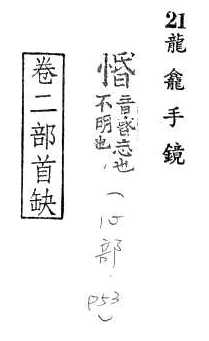 21
龍龕手鏡
惛音昏忘也
不明也
(忄部.
P53)
卷二部首缺